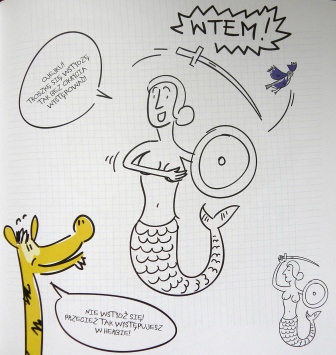 WTEM!
OJEJKU!
TROSZKĘ SIĘ WSTYDZĘ,
TAK BEZ OKRYCIA
WYSTĘPOWAĆ!
NIE WSTYDŹ SIĘ!
PRZECIEŻ TAK WYSTĘPUJESZ
W HERBIE!